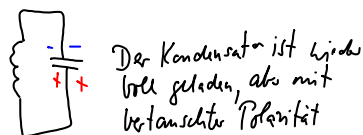 - -
+ +
Der Kondensator ist wieder
voll geladen, aber mit
vertauschter Polarität